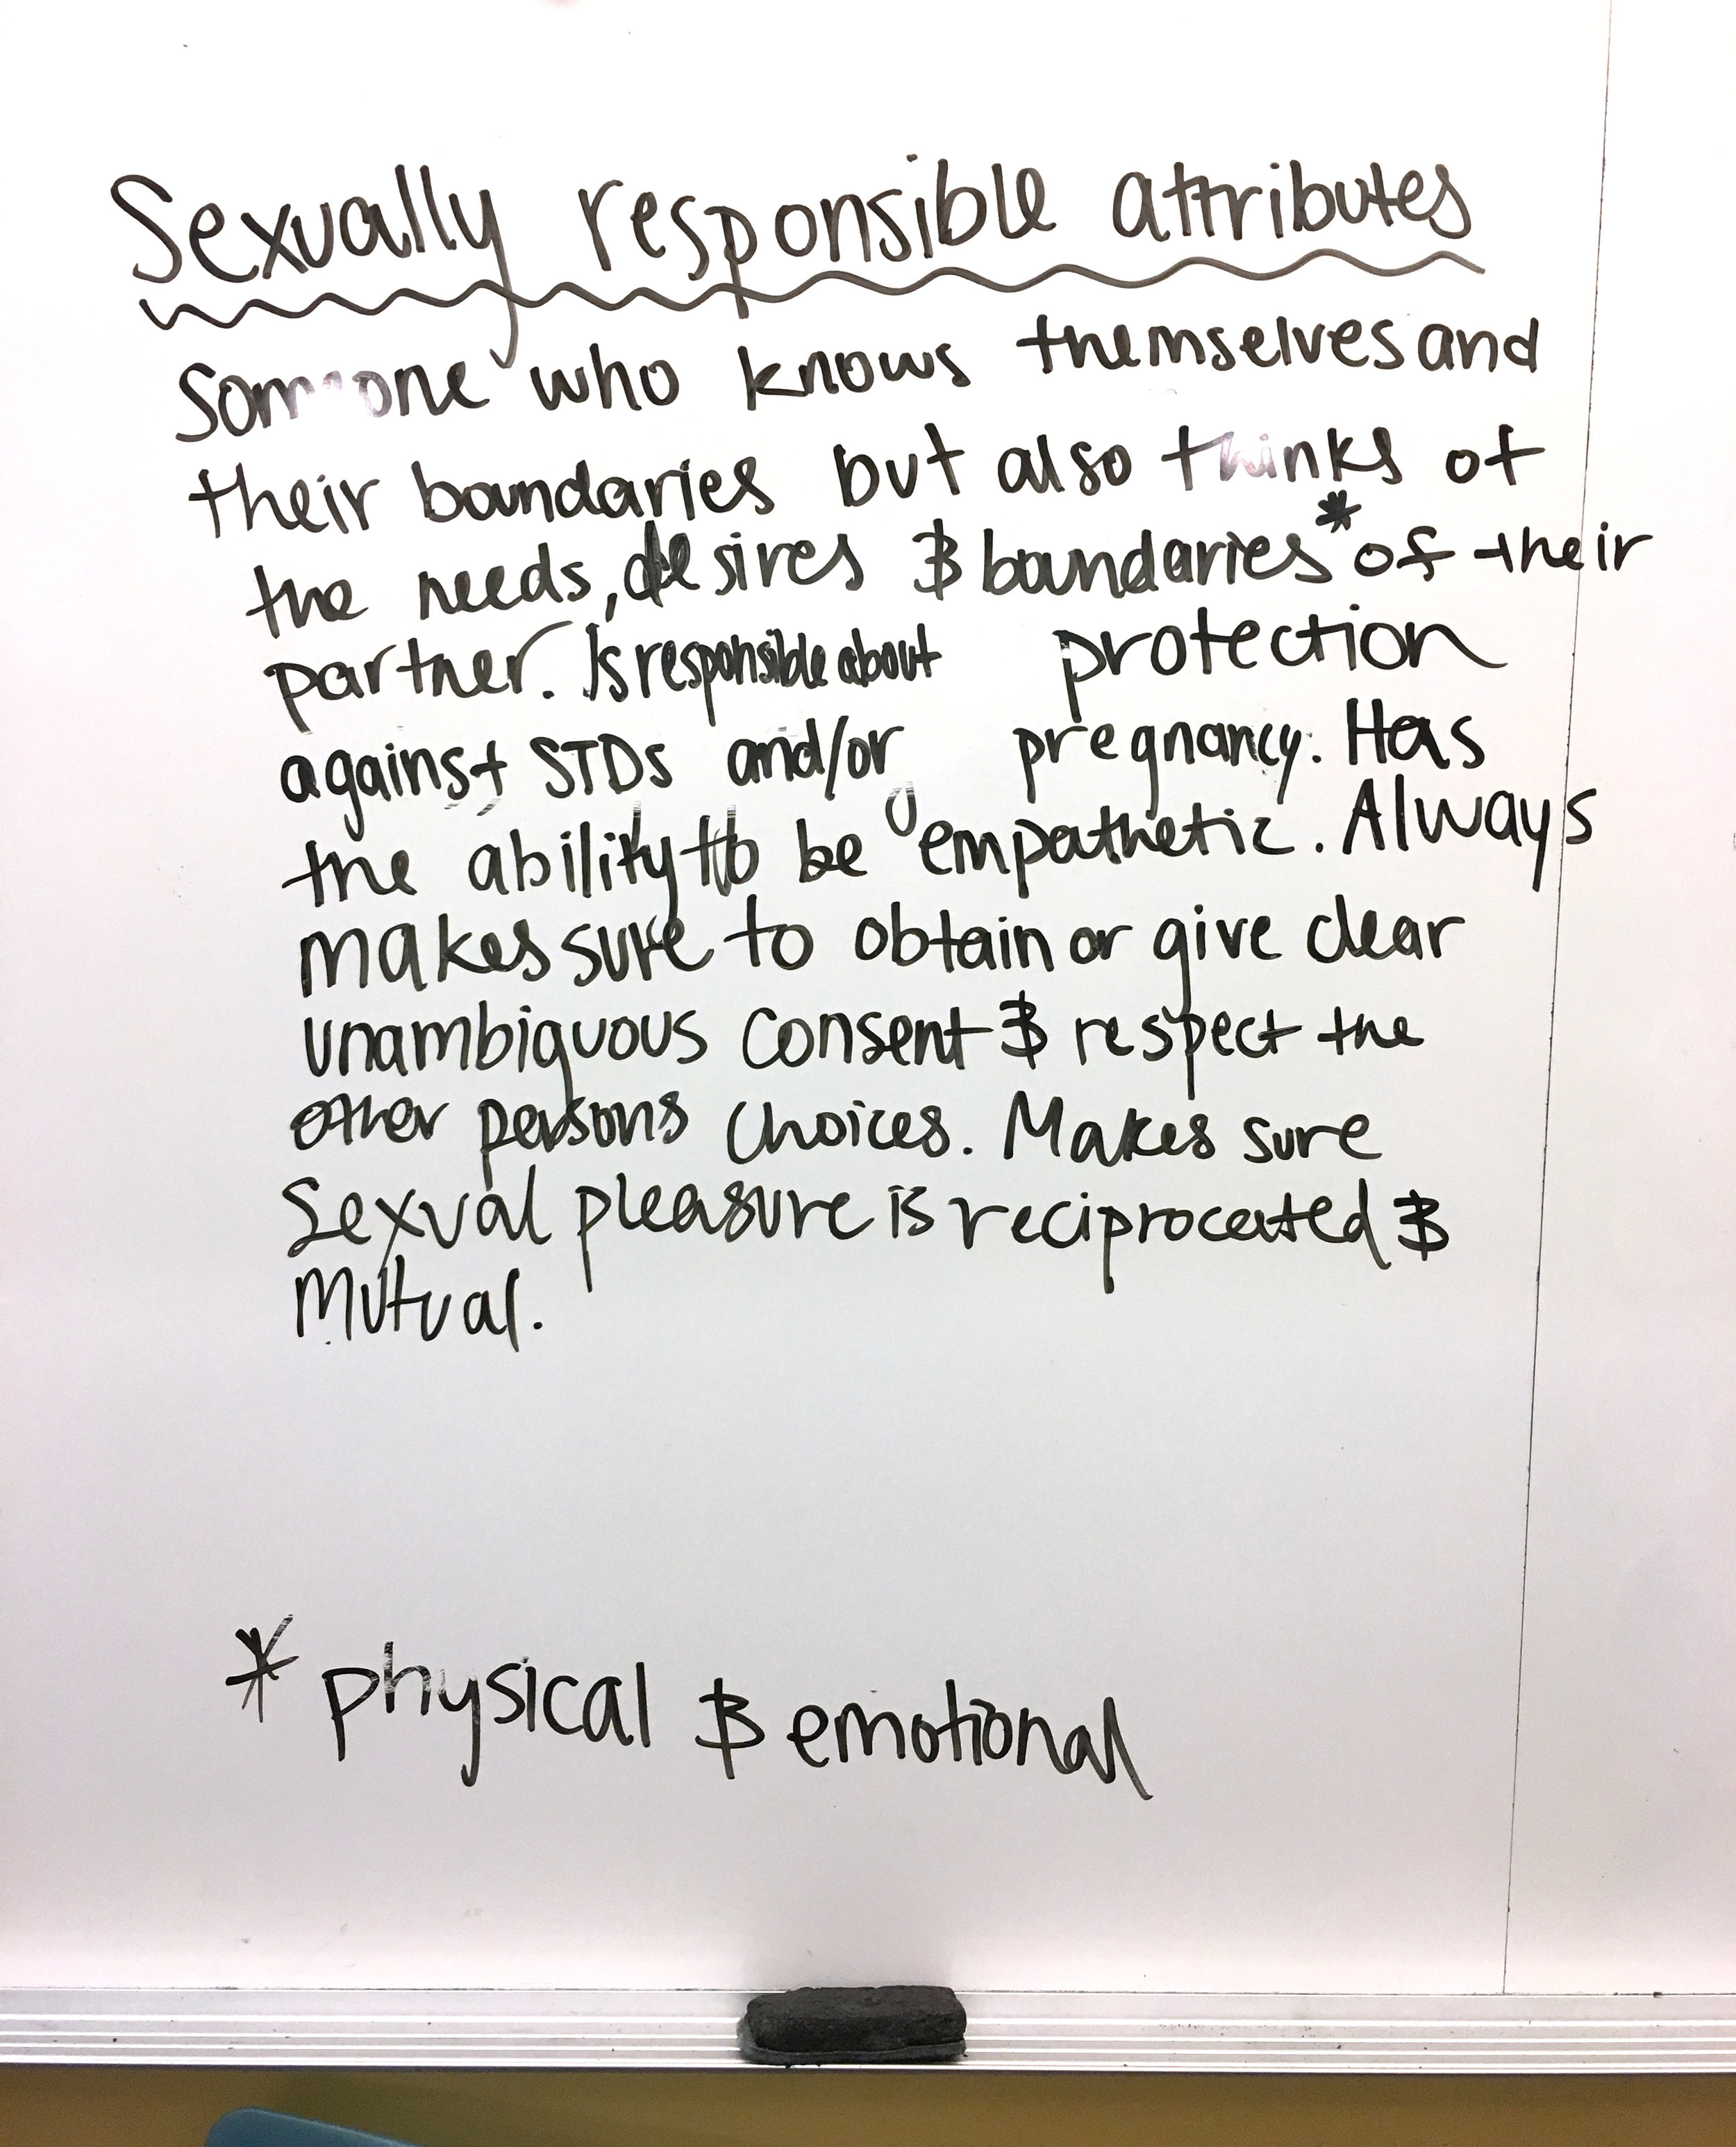 Sexually responsible attributes
Someone who knows themselves and
their boundaries but also thinks of
the needs, desires & boundaries* of their
partner. Is responsible about protection
against STDs and/or pregnancy. Has
the ability to be empathetic. Always
makes sure to obtain or give clear
unambiguous consent & respect the
other persons choices. Makes sure
sexual pleasure is reciprocated &
mutual.
* physical & emotional